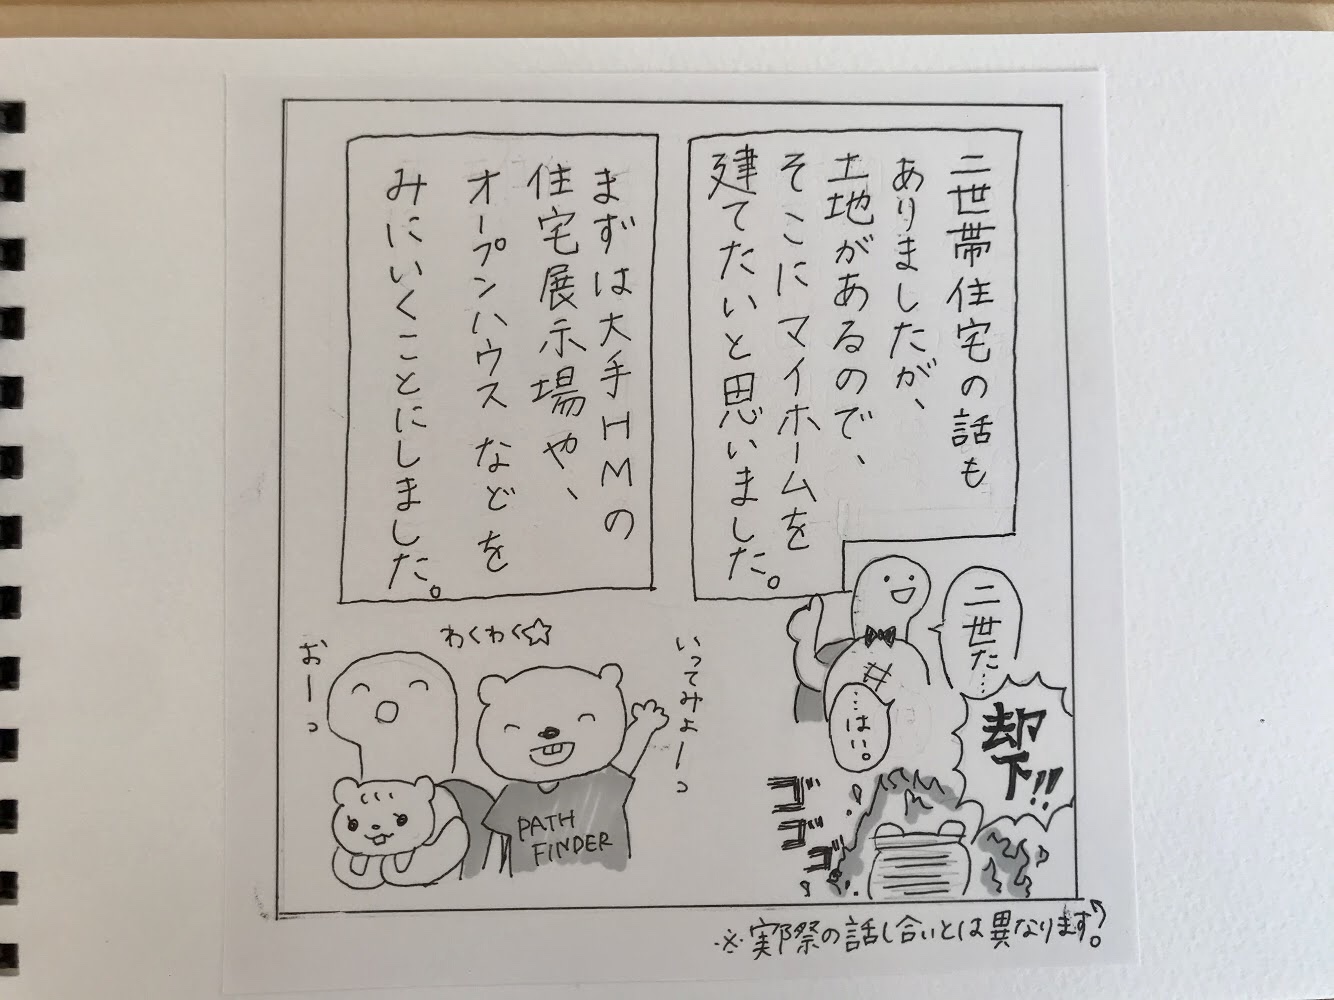 二世帯住宅の話も
ありましたが、
土地があるので、
そこにマイホームを
建てたいと思いました。
二世た…
却下!!
…はい。
ゴゴゴ
まずは大手HMの
住宅展示場や、
オープンハウスなどを
みにいくことにしました。
いってみよーっ
わくわく☆
おーっ
PATH
FINDER
※実際の話し合いとは異なります。